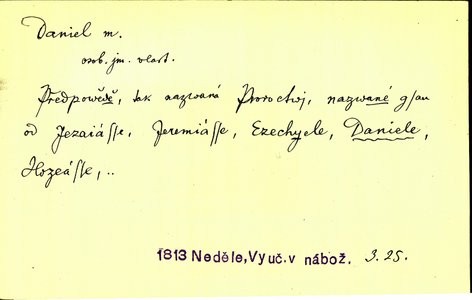 Daniel m.
osob. jm. vlast.
Předpowěďě, tak nazwaná Proroctwj, nazwané gsau
od Jezaiásse, Jeremiásse, Ezechyele, Daniele,
Hozeásse, ..
1813 Neděle, Vyuč. v nábož. 3.25.